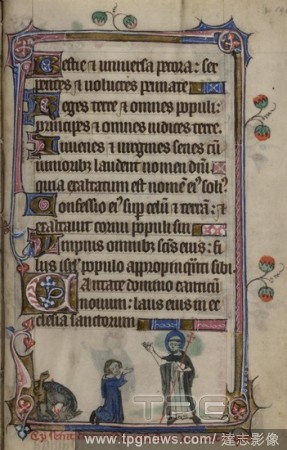 Bestie ⁊ universa pecora: ser
pentes ⁊ volucres pennate
Reges terre ⁊ omnes populi:
principes ⁊ omnes iudices terre.
Iuvenes ⁊ virgines senes cū
iunioribus laudent nomen dn̄i:
quia exaltatum est nomē ei⁹ soli⁹
Confessio ei⁹ sup̄ celū ⁊ terrā: ⁊
exaltavit cornu populi sui
Ympnus omnibꝫ sc̄is eius: fi
liis isr̄l populo appropinq̄nti sibi.
Cantate domino canticū
novum: laus eius in ec
clesia sanctorum
TPG
www.tpgnews.com/ 達志影像